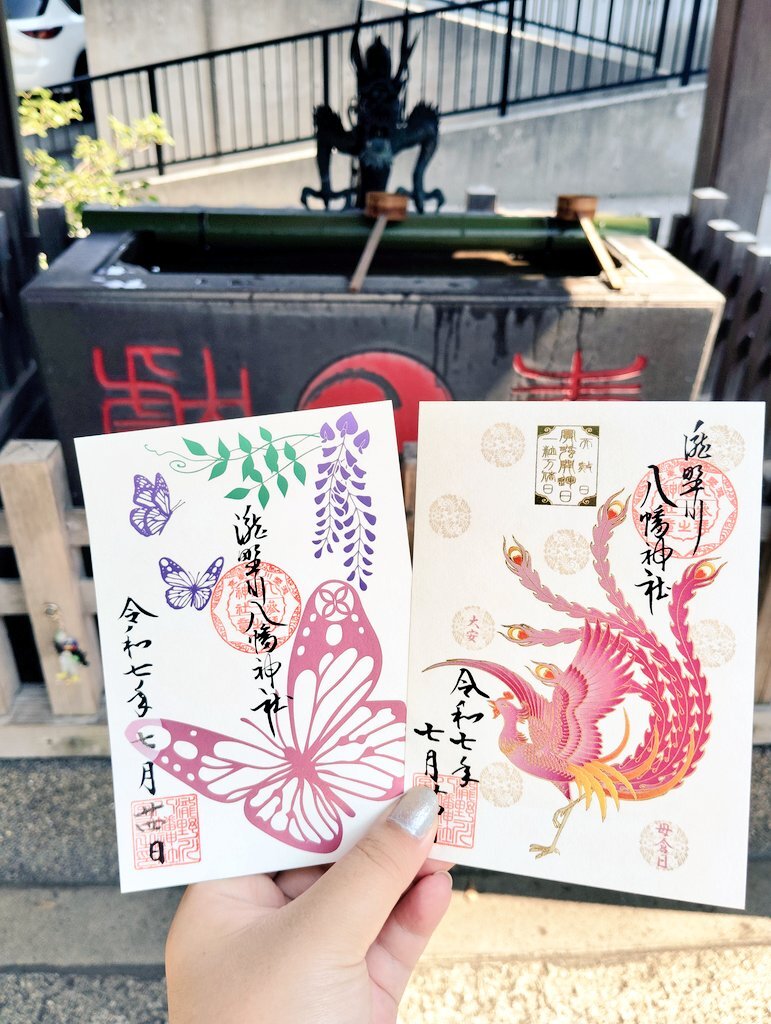 奉
獻
瀧野川
八幡神社
令和七年
七月
廿日
瀧野川
八幡神社
天赦日
一粒万倍日
大安
母倉日
令和七年
七月